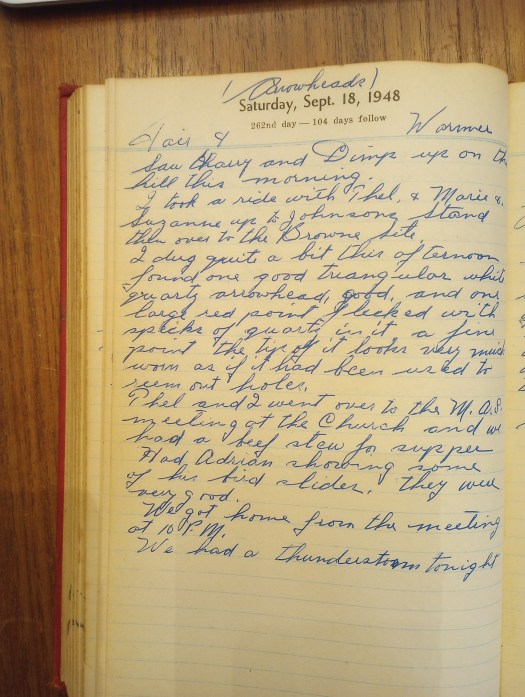 (Arrowheads)
Saturday, Sept. 18, 1948
262nd day — 104 days follow
Fair & Warmer
Saw Harry and Dimp up on the
hill this morning.
I took a ride with Thel, & Marie &
Suzanne up to Johnsons Stand
then over to the Browne Site.
I dug quite a bit this afternoon
found one good triangular white
quartz arrowhead, good, and one
large red point flecked with
specks of quartz in it, a fine
point the tip of it looks very much
worn as if it had been used to
reem out holes.
Thel and I went over to the M.A.S.
meeting at the Church and we
had a beef stew for supper
Had Adrian showing some
of his bird slides. they were
very good.
We got home from the meeting
at 10 P.M.
We had a thunderstorm tonight